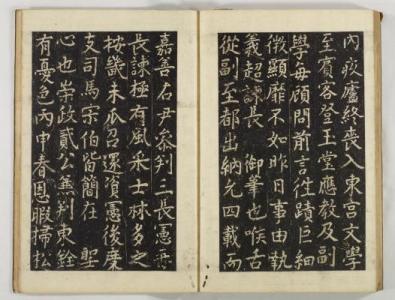 內疚廬終喪入東宮文學
至賓客登玉堂應教及副
學每顧問前言往蹟巨細
微顯靡不如昨日事由執
義超諫長 御筆也喉舌
從副至都出納凡四載而
嘉善君尹參判三長憲再
長諫極有風采士林多之
按畿未瓜召還資憲後秉
支司馬宗伯皆簡在 聖
心也崇政貳公兼判東銓
有憂色丙申春恩暇掃松